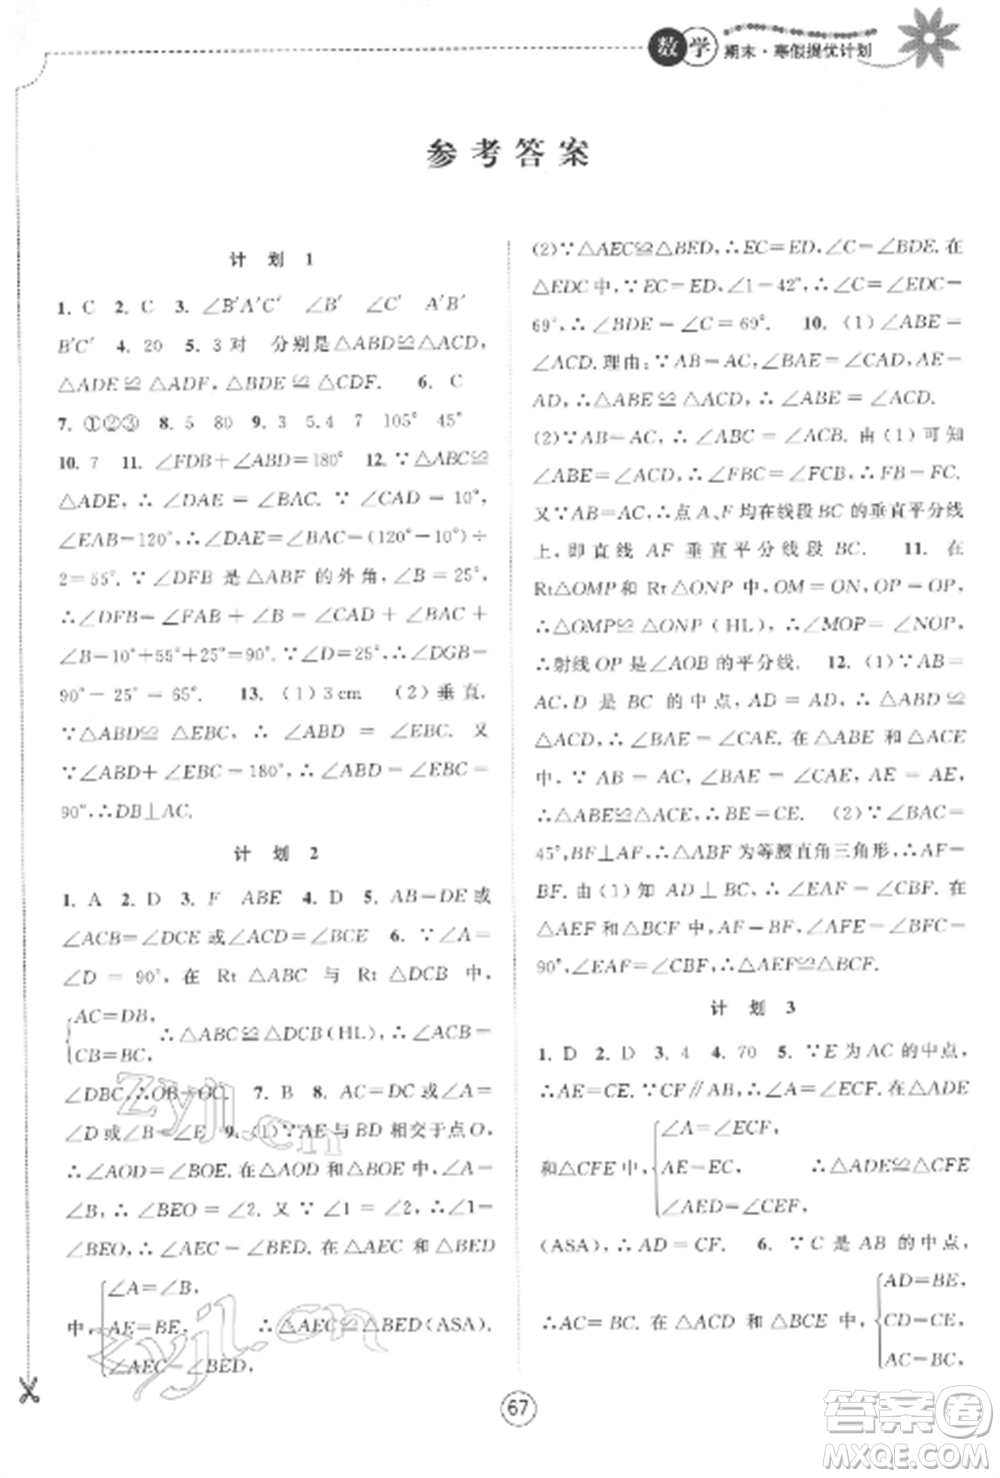 数学 期末·寒假提优计划
参考答案
计 划 1
1. C 2. C 3. ∠B′A′C′ ∠B′ ∠C′ A′B′
B′C′ 4. 20 5. 3 对 分别是△ABD≌△ACD,
△ADE≌△ADF,△BDE≌△CDF. 6. C
7. ①②③ 8. 5 80 9. 3 5.4 105° 45°
10. 7 11. ∠FDB+∠ABD=180° 12. ∵△ABC≌
△ADE,∴∠DAE=∠BAC. ∵∠CAD=10°,
∠EAB=120°,∴∠DAE=∠BAC=(120°-10°)÷
2=55°. ∵∠DFB 是△ABF 的外角,∠B=25°,
∴∠DFB=∠FAB+∠B=∠CAD+∠CAB+
∠B=10°+55°+25°=90°. ∴∠D=∠DGB=
90°-25°=65°. 13. (1) 3 cm (2) 垂直.
∵△ABD≌△EBC,∴∠ABD=∠EBC. 又
∵∠ABD+∠EBC=180°,∴∠ABD=∠EBC=
90°,∴DB⊥AC.
计 划 2
1. A 2. D 3. F ABE 4. D 5. AB=DE或
∠ACB=∠DCE或∠ACD=∠BCE 6. ∵∠A=
∠D=90°,在 Rt△ABC 与 Rt△DCB 中,
{AC=DB,
CB=BC, ∴△ABC≌△DCB(HL),∴∠ACB=
∠DBC,∴OB=OC. 7. B 8. AC=DC或∠A=
∠D或∠B=∠E 9. (1)∵AE与BD相交于点O,
∴∠AOD=∠BOE. 在△AOD和△BOE中,∠A=
∠B,∴∠BEO=∠2. 又∵∠1=∠2,∴∠1=
∠BEO,∴∠AEC=∠BED. 在△AEC 和△BED
中,{∠A=∠B,
AE=BE, ∴△AEC≌△BED(ASA).
∠AEC=∠BED,
(2)∵△AEC≌△BED,∴EC=ED,∠C=∠BDE. 在
△EDC中,∵EC=ED,∠1=42°,∴∠C=∠EDC=
69°,∴∠BDE=∠C=69°. 10. (1) ∠ABE=
∠ACD. 理由:∵AB=AC,∠BAE=∠CAD,AE=
AD,∴△ABE≌△ACD,∴∠ABE=∠ACD.
(2)∵AB=AC,∴∠ABC=∠ACB. 由(1)可知
∠ABE=∠ACD,∴∠FBC=∠FCB,∴FB=FC.
又∵AB=AC,∴点A、F均在线段BC的垂直平分线
上,即直线 AF 垂直平分线段 BC. 11. 在
Rt△OMP 和 Rt△ONP 中,OM=ON,OP=OP,
∴△OMP≌△ONP(HL),∴∠MOP=∠NOP,
∴射线OP是∠AOB的平分线. 12. (1)∵AB=
AC,D 是 BC 的中点,AD=AD,∴△ABD≌
△ACD,∴∠BAE=∠CAE. 在△ABE和△ACE
中,∵AB=AC,∠BAE=∠CAE,AE=AE,
∴△ABE≌△ACE,∴BE=CE. (2)∵∠BAC=
45°,BF⊥AF,∴△ABF为等腰直角三角形,∴AF=
BF. 由(1)知 AD⊥BC,∴∠EAF=∠CBF. 在
△AEF和△BCF中,AF=BF,∠AFE=∠BFC=
90°,∠EAF=∠CBF,∴△AEF≌△BCF.
计 划 3
1. D 2. D 3. 4 4. 70 5. ∵E为AC的中点,
∴AE=CE. ∵CF∥AB,∴∠A=∠ECF. 在△ADE
和△CFE中,{∠A=∠ECF,
AE=EC, ∴△ADE≌△CFE
∠AED=∠CEF,
(ASA),∴AD=CF. 6. ∵C 是 AB 的中点,
∴AC=BC. 在△ACD和△BCE中,{AD=BE,
CD=CE,
AC=BC,
67
zyjl.cn
zyjl.cn
答案圈
MXQE.COM